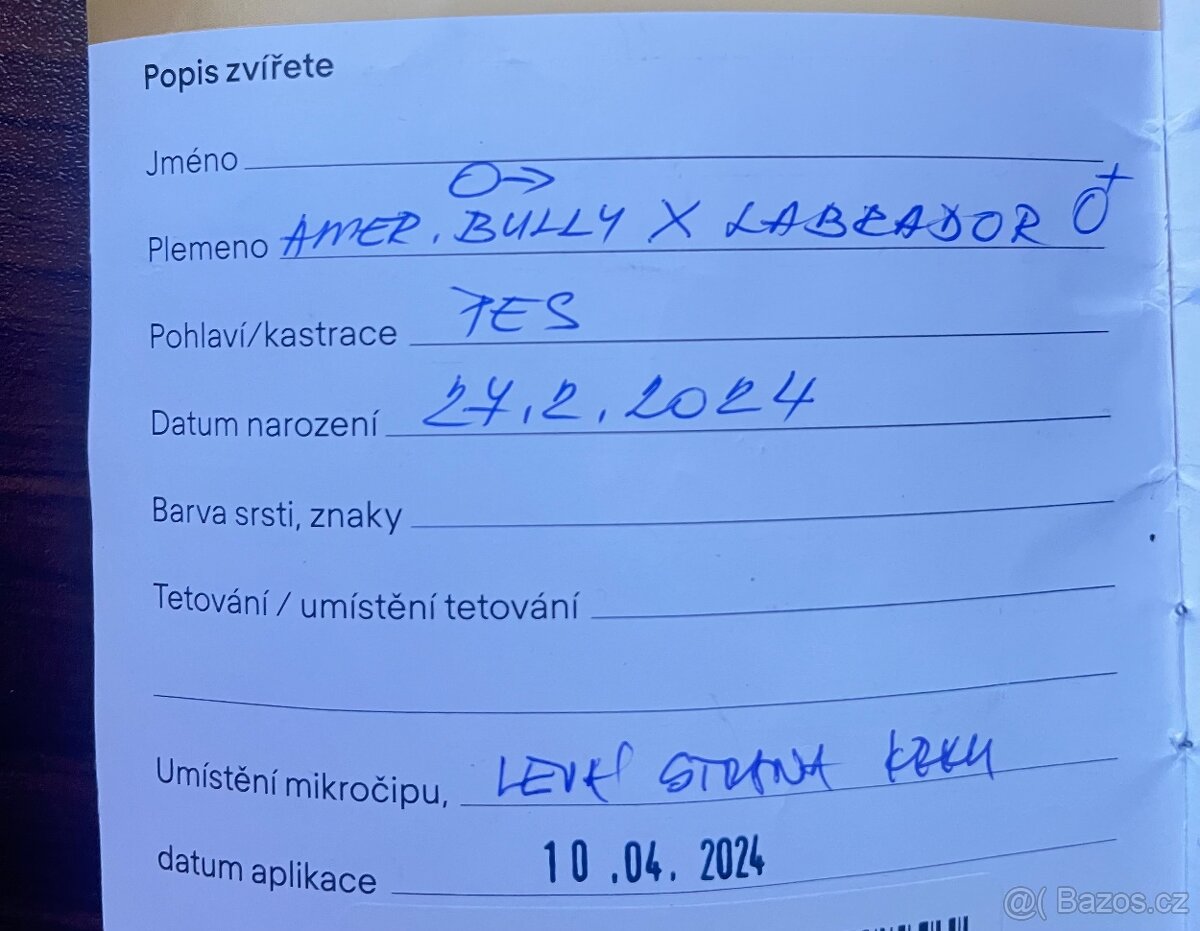 Popis zvířete
Jméno
Plemeno AMER. BULLY X LABRADOR
Pohlaví/kastrace PES
Datum narození 27.2.2024
Barva srsti, znaky
Tetování / umístění tetování
Umístění mikročipu, LEVÁ STRANA KRKU
datum aplikace 10.04.2024
@( Bazos.cz